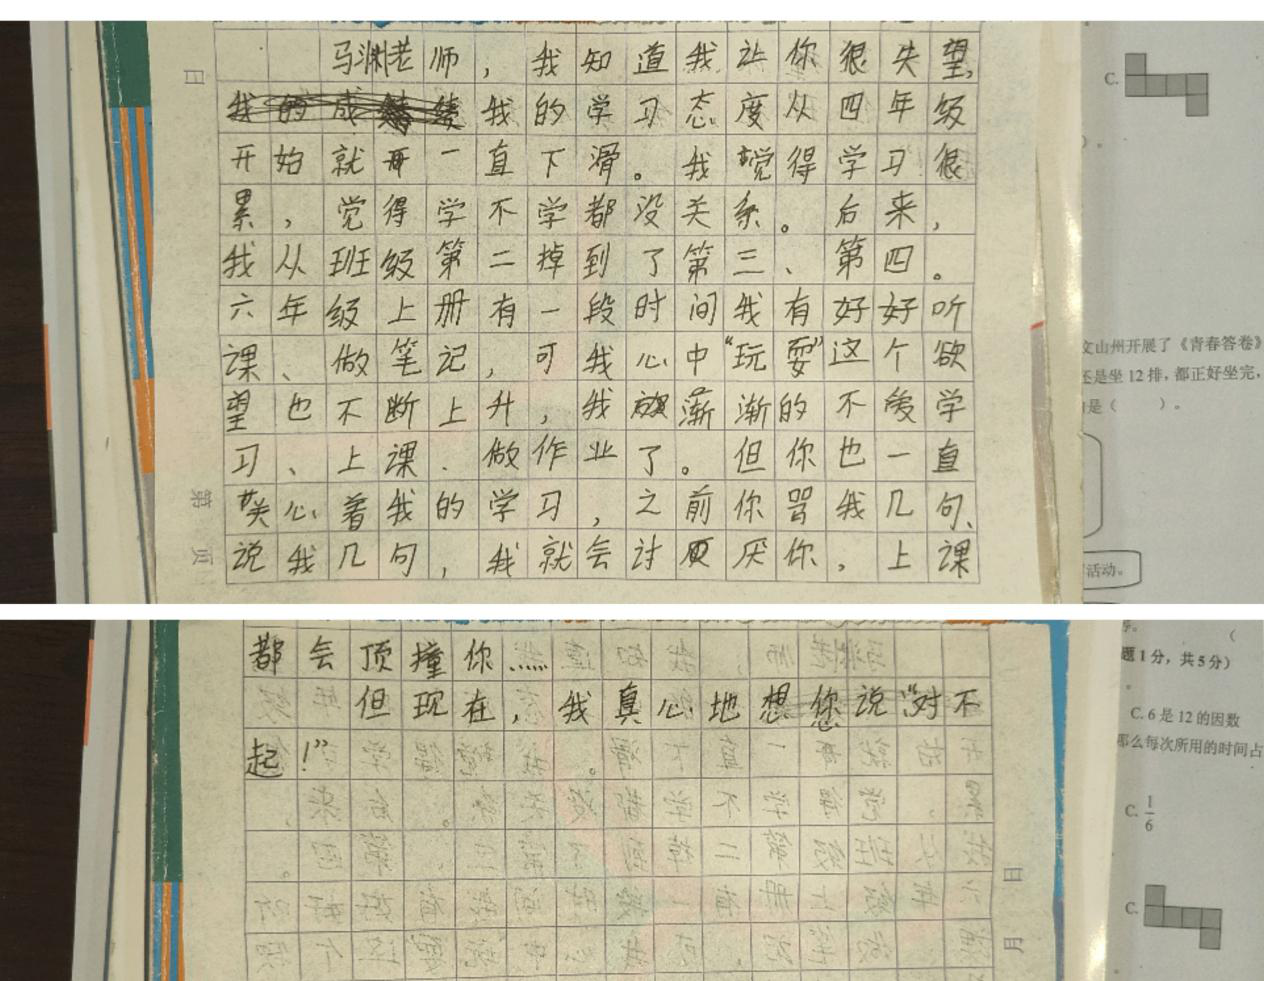 马渊老师，我知道我让你很失望，
我的成绩我的学习态度从四年级
开始就一直下滑。我觉得学习很
累，觉得学不学都没关系。后来，
我从班级第二掉到了第三、第四。
六年级上册有一段时间我有好好听
课、做笔记，可我心中“玩耍”这个欲
望也不断上升，我渐渐的不爱学
习、上课、做作业了。但你也一直
关心着我的学习，之前你骂我几句、
说我几句，我就会讨厌你，上课
都会顶撞你……
但现在，我真心地想您说“对不
起！”
日
第 页
C.
文山州开展了《青春答卷》
还是坐12排，都正好坐完，
是（ ）。
活动。
题1分，共5分）
C. 6是12的因数
那么每次所用的时间占
C. 1/6
C.
日
月